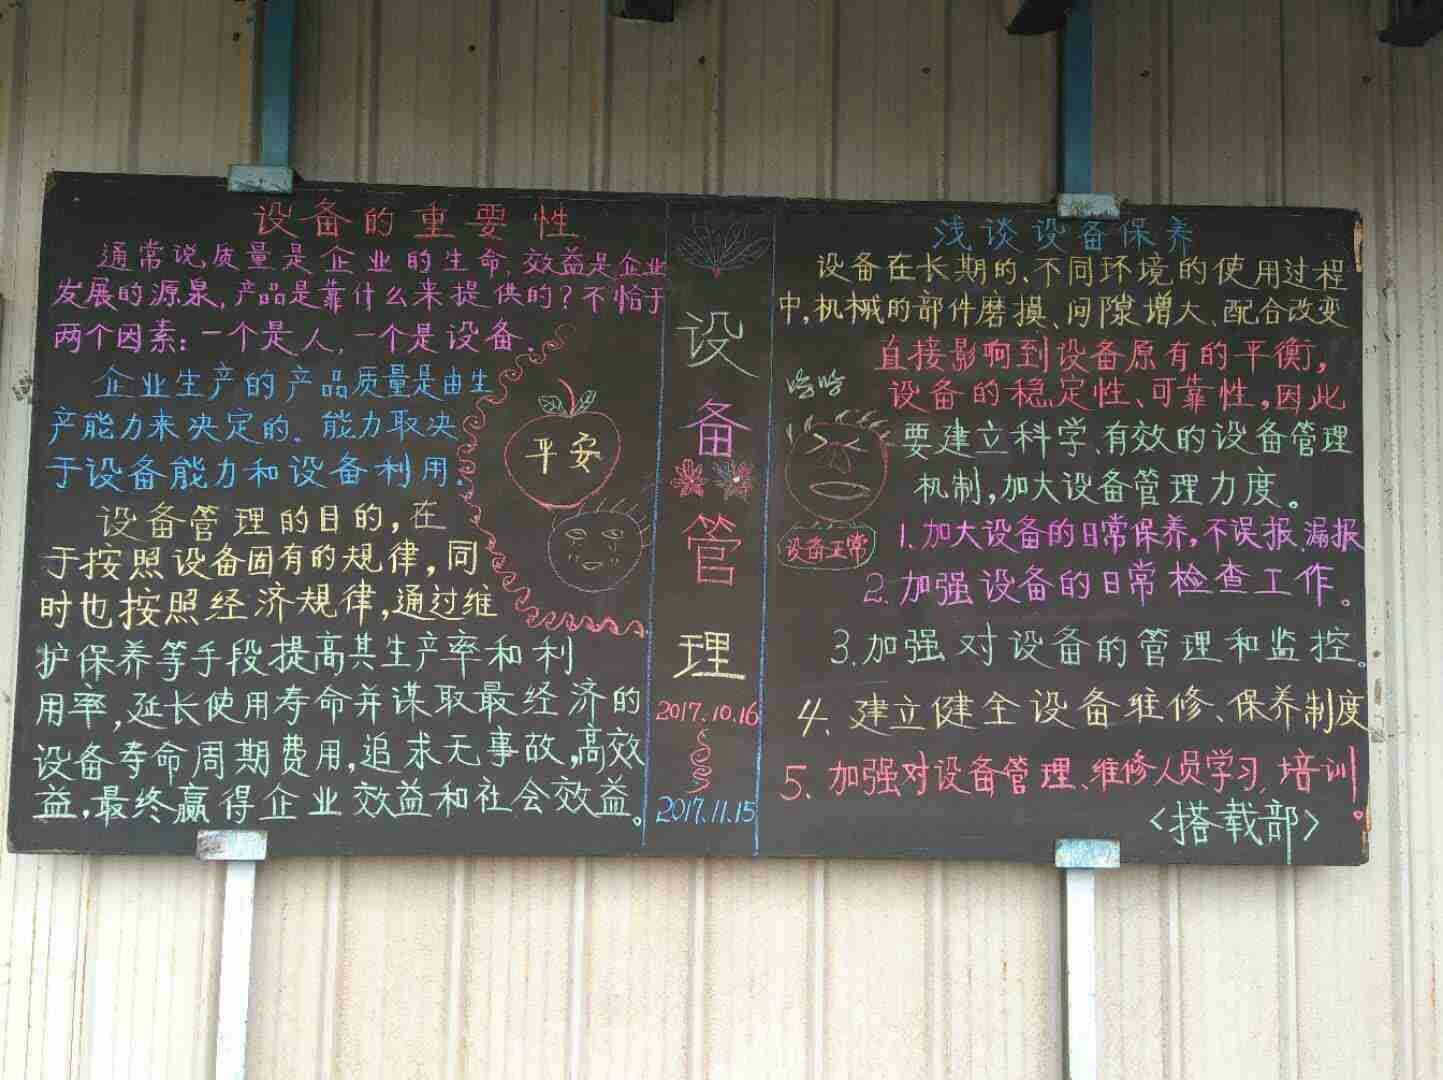 设备的重要性
通常说质量是企业的生命,效益是企业
发展的源泉,产品是靠什么来提供的?不恰于
两个因素:一个是人,一个是设备.
企业生产的产品质量是由生
产能力来决定的.能力取决
于设备能力和设备利用.
设备管理的目的,在
于按照设备固有的规律,同
时也按照经济规律,通过维
护保养等手段提高其生产率和利
用率,延长使用寿命并谋取最经济的
设备寿命周期费用,追求无事故,高效
益,最终赢得企业效益和社会效益。
平安
设
备
管
理
2017.10.16
2017.11.15
浅谈设备保养
设备在长期的、不同环境的使用过程
中,机械的部件磨摸、间隙增大、配合改变
直接影响到设备原有的平衡,
设备的稳定性、可靠性,因此
要建立科学、有效的设备管理
机制,加大设备管理力度。
1.加大设备的日常保养,不误报.漏报
2.加强设备的日常检查工作。
3.加强对设备的管理和监控。
4.建立健全设备维修、保养制度
5.加强对设备管理、维修人员学习,培训。
<搭载部>
哈哈
设备正常